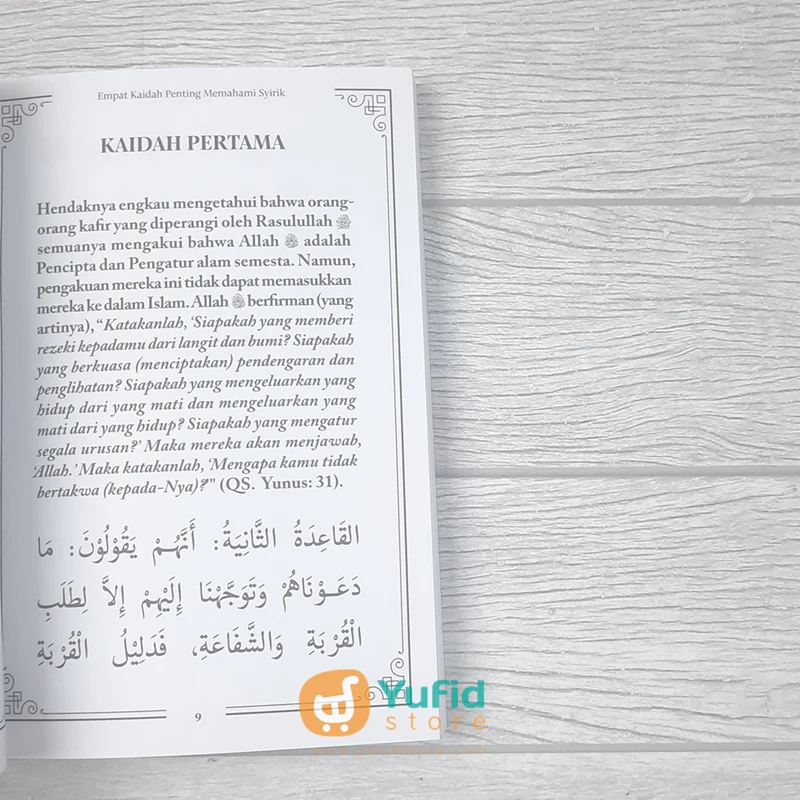 Empat Kaidah Penting Memahami Syirik
KAIDAH PERTAMA
Hendaknya engkau mengetahui bahwa orang-
orang kafir yang diperangi oleh Rasulullah ﷺ
semuanya mengakui bahwa Allah adalah
Pencipta dan Pengatur alam semesta. Namun,
pengakuan mereka ini tidak dapat memasukkan
mereka ke dalam Islam. Allah berfirman (yang
artinya), “Katakanlah, ‘Siapakah yang memberi
rezeki kepadamu dari langit dan bumi? Siapakah
yang berkuasa (menciptakan) pendengaran dan
penglihatan? Siapakah yang mengeluarkan yang
hidup dari yang mati dan mengeluarkan yang
mati dari yang hidup? Siapakah yang mengatur
segala urusan?’ Maka mereka akan menjawab,
‘Allah.’ Maka katakanlah, ‘Mengapa kamu tidak
bertakwa (kepada-Nya)?’" (QS. Yunus: 31).
القَاعِدَةُ الثَّانِيَةُ: أَنَّهُمْ يَقُوْلُوْنَ: مَا
دَعَوْنَاهُمْ وَتَوَجَّهْنَا إِلَيْهِمْ إِلاَّ لِطَلَبِ
الْقُرْبَةِ وَالشَّفَاعَةِ، فَدَلِيْلُ الْقُرْبَةِ
9
Yufid
store